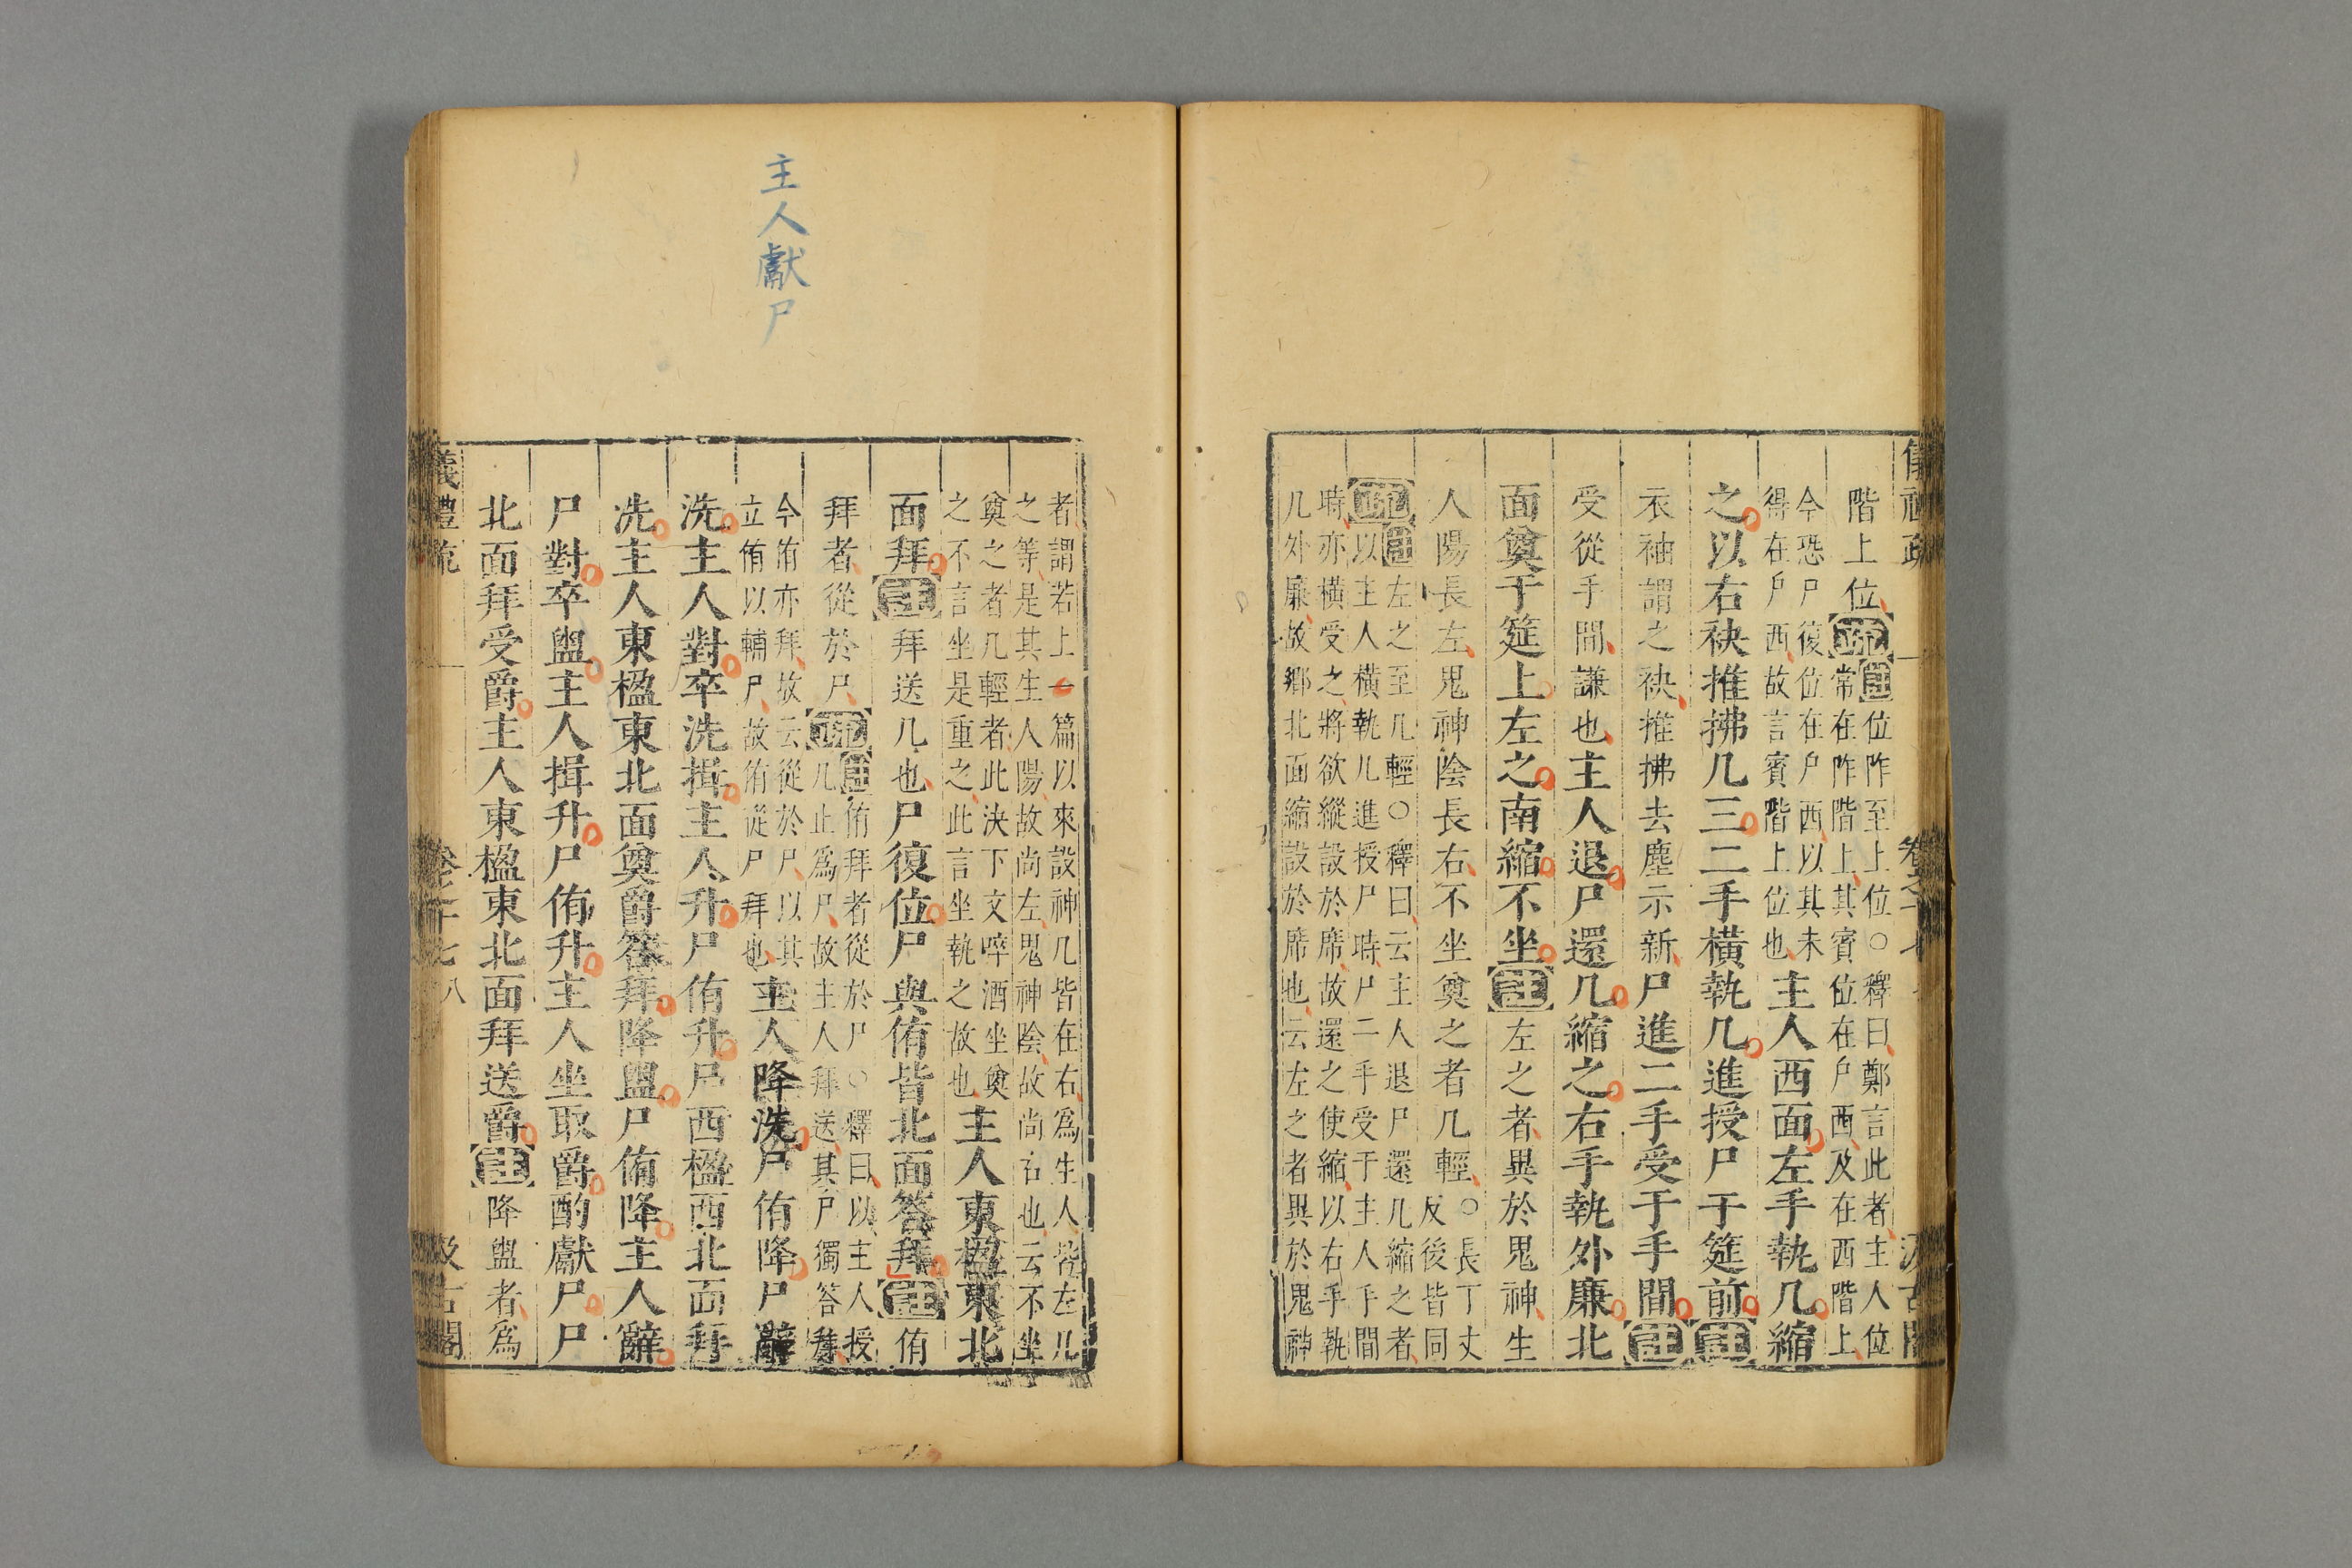 儀禮疏 卷之十七 汲古閣
階上位疏位阼至上位○釋曰鄭言此者主人位
常在阼階上其賓位在戶西及在西階上
今恐尸復位在戶西以其未
得在戶西故言賓階上位也主人西面左手執几縮
之以右袂推拂几三二手橫執几進授尸于筵前註
衣袖謂之袂推拂去塵示新尸進二手受于手間註
受從手間謙也主人退尸還几縮之右手執外廉北
面奠于筵上左之南縮不坐註左之者異於鬼神生
人陽長左鬼神陰長右不坐奠之者几輕○長丁丈
反後皆同
疏左之至几輕○釋曰云主人退尸還几縮之者
以主人橫執几進授尸時尸二手受于主人手間
時亦橫受之將欲縱設於席故還之使縮以右手執
几外廉故鄉北面縮設於席也云左之者異於鬼神
主人獻尸
者謂若上一篇以來設神几皆在右為生人皆左几
之等是其生人陽故尚左鬼神陰故尚右也云不坐
奠之者几輕者此決下文啐酒坐奠
之不言坐是重之此言坐執之故也主人東楹東北
面拜註拜送几也尸復位尸與侑皆北面答拜註侑
拜者從於尸疏侑拜者從於尸○釋曰以主人授
几止為尸故主人拜送其尸獨答拜
今侑亦拜故云從於尸以其
立侑以輔尸故侑從尸拜也主人降洗尸侑降尸辭
洗主人對卒洗揖主人升尸侑升尸西楹西北面拜
洗主人東楹東北面奠爵答拜降盥尸侑降主人辭
尸對卒盥主人揖升尸侑升主人坐取爵酌獻尸尸
北面拜受爵主人東楹東北面拜送爵註降盥者為
儀禮疏 卷之十七 八 汲古閣